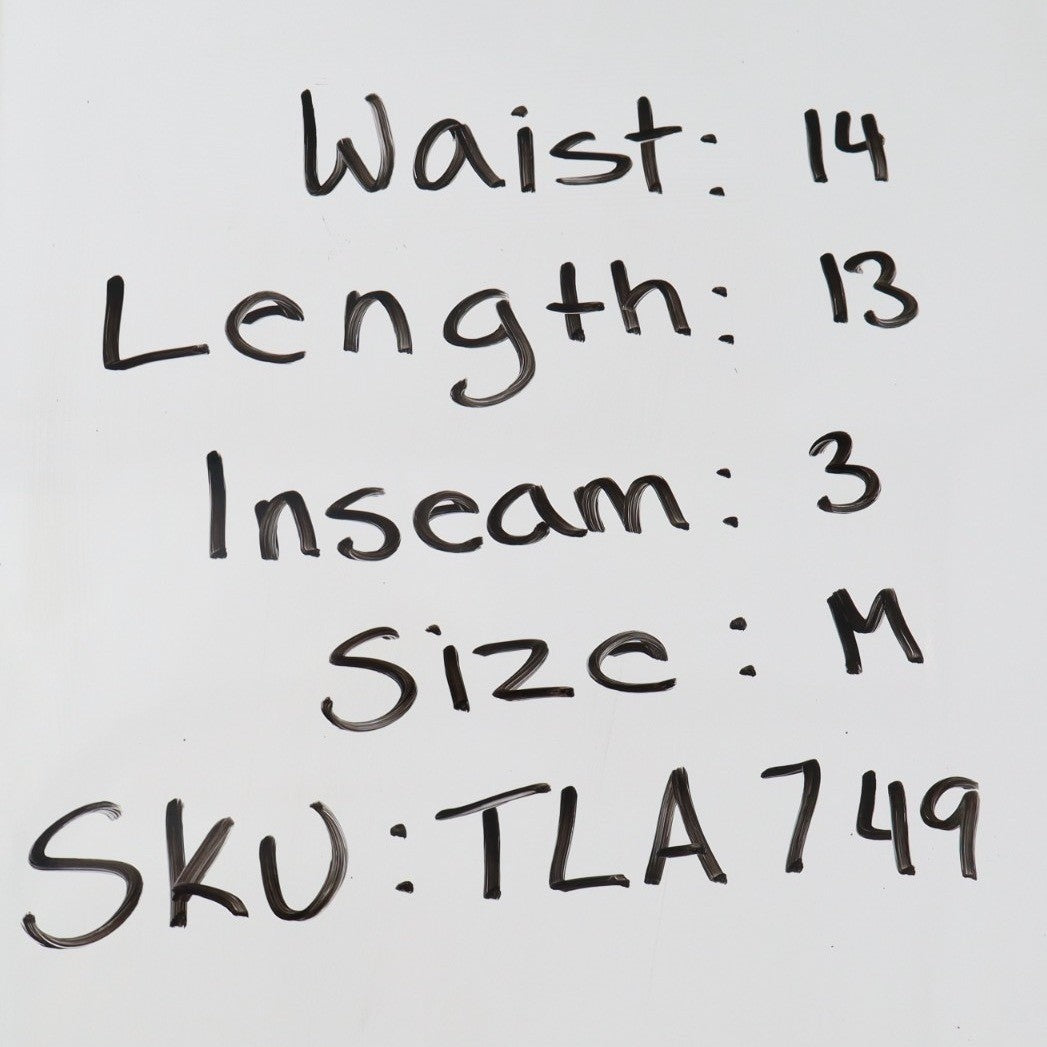 Waist: 14
Length: 13
Inseam: 3
Size: M
SKU: TLA 749